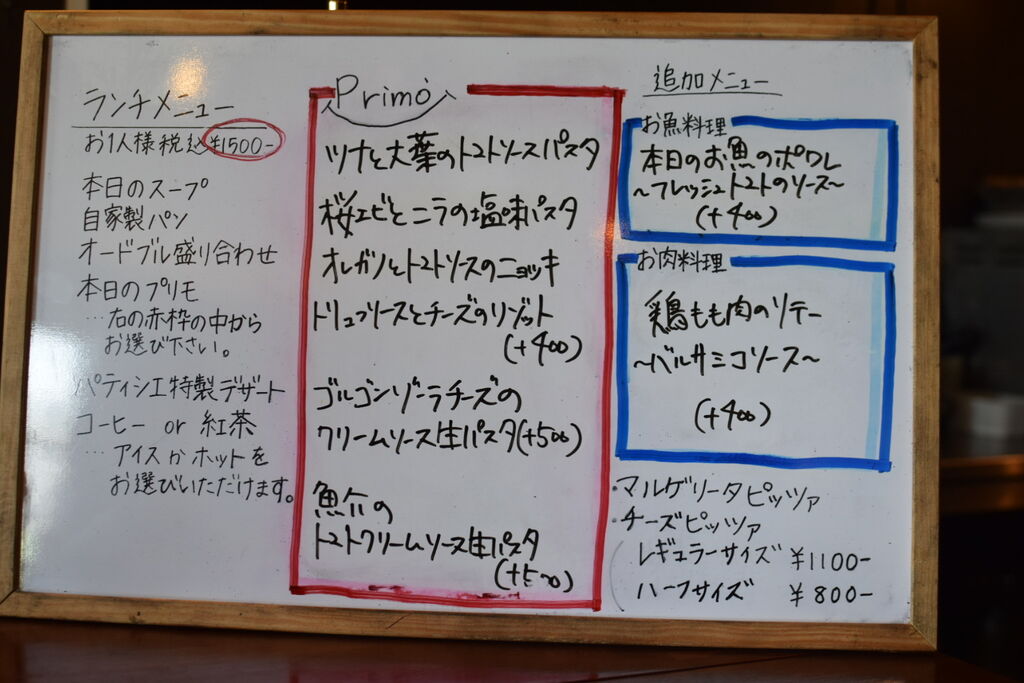 ランチメニュー
お1人様税込¥1500-
本日のスープ
自家製パン
オードブル盛り合わせ
本日のプリモ
…右の赤枠の中から
お選び下さい。
パティシエ特製デザート
コーヒー or 紅茶
…アイスかホットを
お選びいただけます。
Primo
ツナと大葉のトマトソースパスタ
桜エビとニラの塩味パスタ
オレガノとトマトソースのニョッキ
トリュフソースとチーズのリゾット
(+400)
ゴルゴンゾーラチーズの
クリームソース生パスタ(+500)
魚介の
トマトクリームソース生パスタ
(+500)
追加メニュー
お魚料理
本日のお魚のポワレ
~フレッシュトマトのソース~
(+400)
お肉料理
鶏もも肉のソテー
~バルサミコソース~
(+400)
・マルゲリータピッツァ
・チーズピッツァ
レギュラーサイズ ¥1100-
ハーフサイズ ¥800-